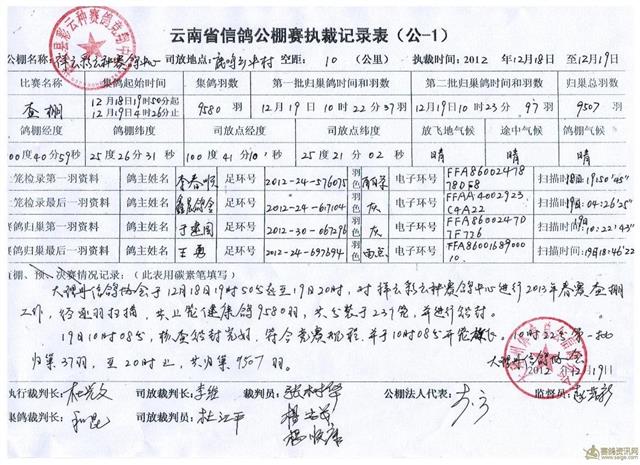 云南省信鸽公棚赛执裁记录表（公-1）
公棚名称：祥云彩云种赛鸽中心 司放地点： 空距：10（公里） 执裁时间：2012年12月18日至12月19日
比赛名称 集鸽起始时间 集鸽羽数 第一批归巢鸽时间和羽数 第二批归巢鸽时间和羽数 归巢总羽数
查棚 12月18日19时50分起 12月19日4时26分止 9580羽 12月19日10时22分37羽 12月19日10时23分97羽 9507羽
鸽棚经度 鸽棚纬度 司放点经度 司放点纬度 放飞地气候 途中气候 鸽棚气候
00度40分59秒 25度26分31秒 100度41分10秒 25度21分02秒 晴 晴 晴
上笼检录第一羽资料 鸽主姓名 李春顺 足环号 2012-24-576075 羽色 雨 电子环号 FFA860024787D8F8 扫描时间 18日19:50'45"
笼检录最后一羽资料 鸽主姓名 足环号 2012-24-617104 灰 电子环号 FFAA4002923C4A22 扫描时间 19日04:26'25"
赛鸽归巢第一羽资料 鸽主姓名 于建国 足环号 2012-30-067296 羽色 灰 电子环号 FFA8600247D7F726 扫描时间：19日10:22'43"
赛鸽归巢最后一羽资料 鸽主姓名 王勇 足环号 2012-24-697694 雨点 电子环号 FFA8600168900010 扫描时间：19日18:46'22
查棚、预、决赛情况记录：（此表用碳素笔填写）
大理州信鸽协会于12月18日19时50分至19日20时，对祥云彩云种赛鸽中心进行2013年春赛查棚
工作，经逐羽扫描，共上笼健康鸽9580羽，共分装于237笼，并进行铅封。
19日10时08分，检查铅封完好，符合竞赛规程，并于10时08分开笼，10时22分第一批
归巢37羽，至20时止，共归巢9507羽。 大理州信鸽协会
2012.12.19
执行裁判长： 司放裁判长：李维 裁判员： 公棚法人代表： 监督员：
集鸽裁判长： 司放裁判员：杜江平
赛鸽资讯网
www.saige.com